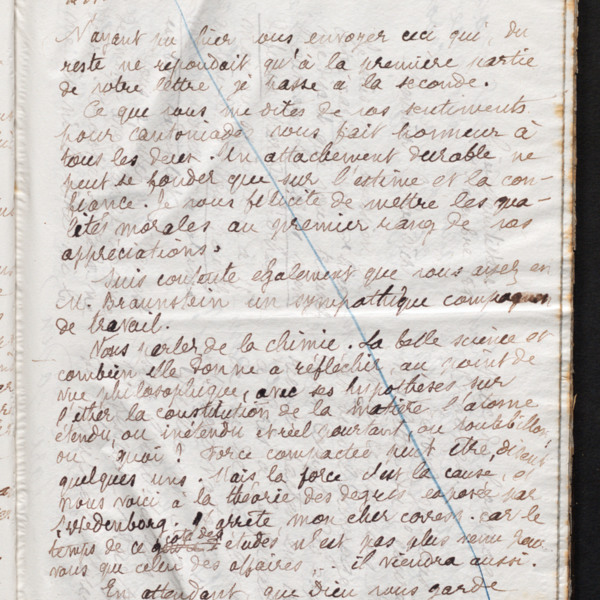 N'ayant pu hier vous envoyer ceci qui, du
reste ne répondait qu'à la première partie
de votre lettre je passe à la seconde.
Ce que vous me dites de vos sentiments
pour vous fait honneur à
tous les deux. Un attachement durable ne
peut se fonder que sur l'estime et la con-
fiance. Je vous félicite de mettre les qua-
lités morales au premier rang de vos
appréciations.
Suis également que vous ayez en
M. Braunstein un sympathique compagnon
de travail.
Vous parlez de la chimie. La belle science et
combien elle donne à réfléchir au point de
vue philosophique, avec ses hypothèses sur
l'éther la constitution de la matière l'atome
étendu, ou inétendu et réel pourtant, ou
ou quoi? Force compactée peut être, disent
quelques uns. Mais la force c'est la cause, et
nous voici à la théorie des degrés exposée par
Swedenborg. J'arrête mon cher car le
temps de ce côté des études n'est pas plus venu pour
vous que celui des affaires ... il viendra aussi.
En attendant que Dieu vous garde